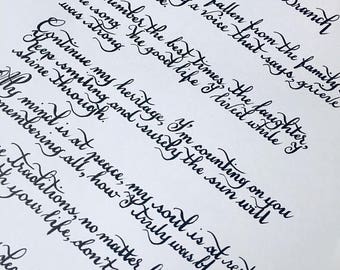 Branch
fallen from the family
a voice that says, grieve
remember the best times, the laughter,
the song
good life I lived while I
was strong
Continue my heritage, I'm counting on you
Keep smiling and surely the sun will
shine through
My mind is at peace, my soul is at rest
remembering all, how I truly was bl
traditions, no matter
your life, don't